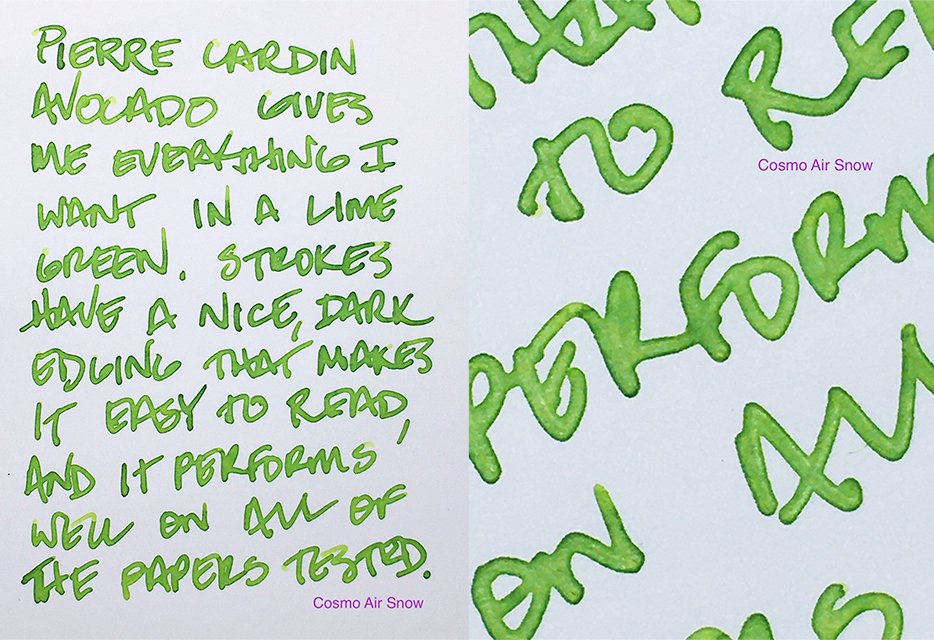 PIERRE CARDIN
AVOCADO GIVES
ME EVERYTHING I
WANT IN A LIME
GREEN. STROKES
HAVE A NICE, DARK
EDGING THAT MAKES
IT EASY TO READ,
AND IT PERFORMS
WELL ON ALL OF
THE PAPERS TESTED.
Cosmo Air Snow
TO RE
Cosmo Air Snow
PERFORM
ON ALL